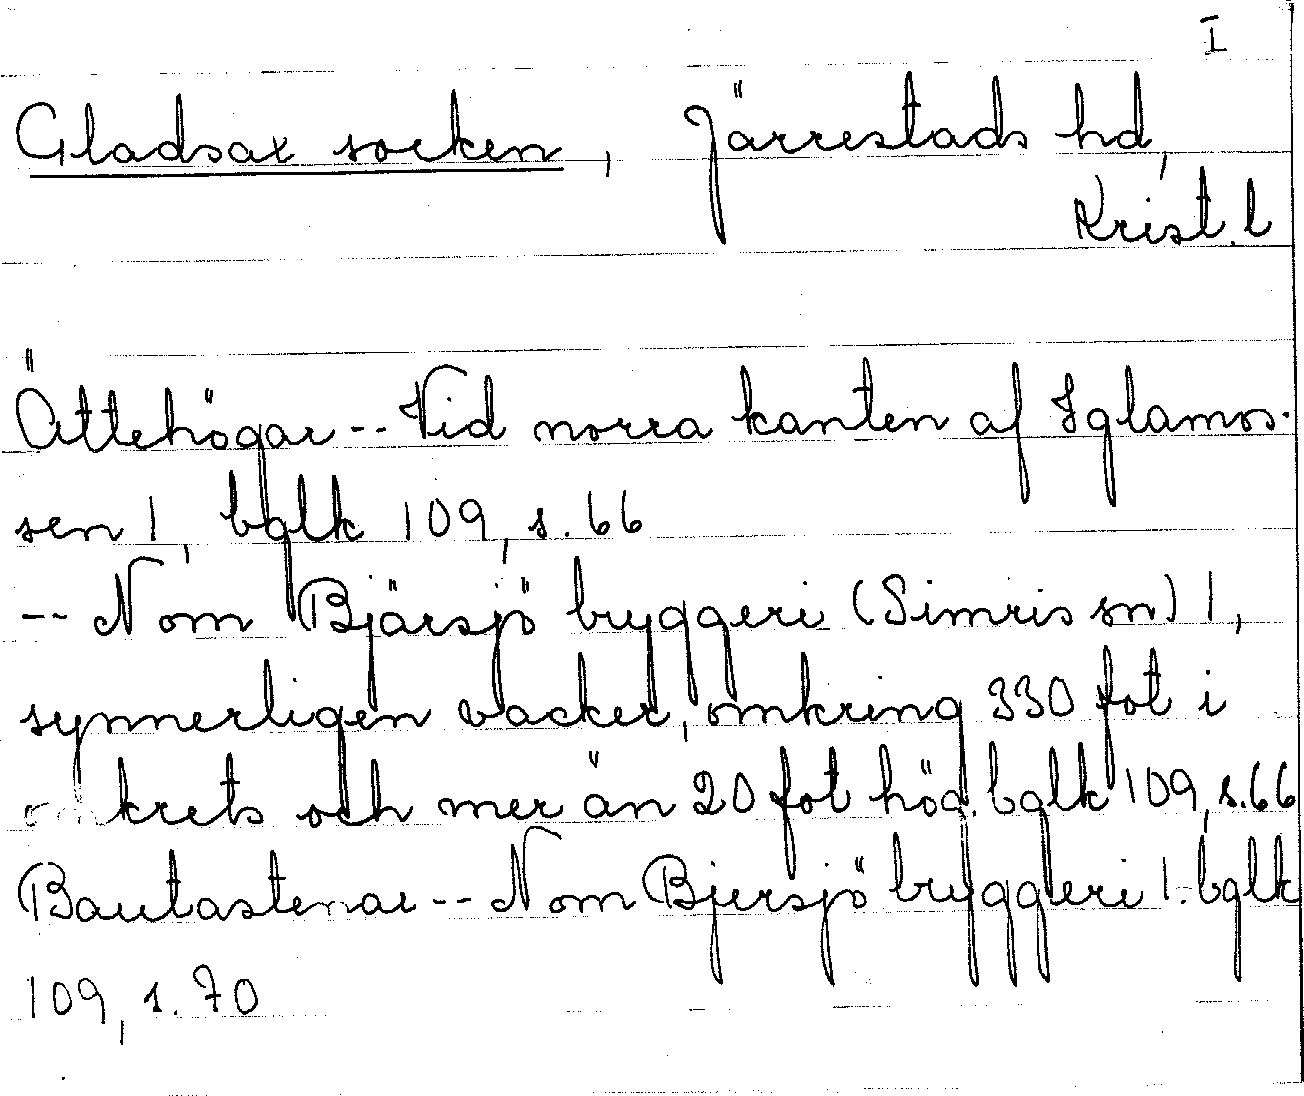 I
Gladsax socken, Järrestads hd,
Krist. l
Ättehögar -- Vid norra kanten af Iglamos-
sen 1, bglk 109, s. 66
-- N om Bjärsjö bryggeri (Simris sn) 1,
synnerligen vacker, omkring 330 fot i
omkrets och mer än 20 fot hög. bglk 109, s. 66
Bautastenar -- N om Bjersjö bryggeri 1. bglk
109, s. 70